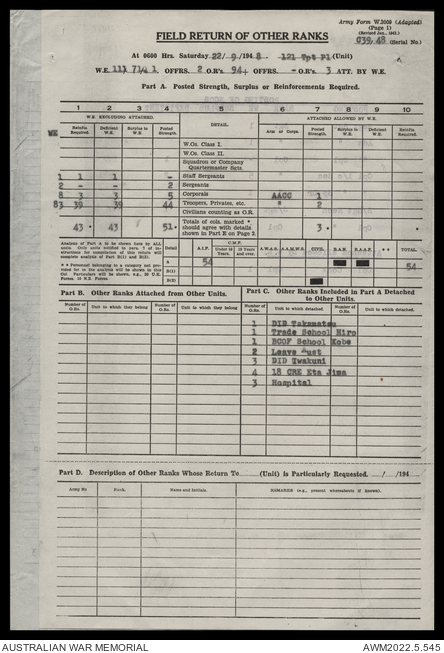 Army Form W.3009 (Adapted)
(Page 1)
(Revised Jan., 1943.)
G39.48 (Serial No.)
FIELD RETURN OF OTHER RANKS
At 0600 Hrs. Saturday 22/ 9/194 8. 121 Tpt Pl (Unit)
W.E. OFFRS. 2 O.R's. 94+ OFFRS. - O.R's. 3 ATT. BY W.E.
Part A. Posted Strength, Surplus or Reinforcements Required.
1 2 3 4 5 6 7 8 9 10
W.E. EXCLUDING ATTACHED. ATTACHED ALLOWED BY W.E.
WE Reinfts. Required. Deficient W.E. Surplus to W.E. Posted Strength DETAIL. Arm or Corps. Reinfts. Required. Posted Strength Deficient W.E. Surplus to W.E.
W.Os. Class I.
W.Os. Class II.
Squadron or Company Quartermaster Sgts.
1 1 1 - Staff Sergeants
2 - - 2 Sergeants
8 3 3 5 Corporals AACC 1
83 39 39 44 Troopers, Privates, etc. " 2
Civilians counting as O.R.
43 • 43 • 51 • Totals of cols. marked * should agree with details shown in Part E on Page 2. 3 •
Analysis of Part A to be shown here by ALL units. Only units notified in para. 7 of instructions for compilation of this return will complete analysis of Part B(1) and B(2).
** Personnel belonging to a category not provided for in the analysis will be shown in this Col. Particulars will be shown, e.g., 20 U.K. Forces. 10 N.Z. Forces.
Detail A.I.F. C.M.F. Under 19 Years. 19 Years and over. A.W.A.S. A.A.M.W.S. CIVIL. R.A.N. R.A.A.F. ** TOTAL.
A 54 54
B(1)
B(2)
Part B. Other Ranks Attached from Other Units.
Part C. Other Ranks Included in Part A Detached to Other Units.
Number of O.Rs. Unit to which they belong Number of O.Rs. Unit to which they belong Number of O.Rs. Unit to which detached. Number of O.Rs. Unit to which detached.
1 DID Takamatsu
1 Trade School Hiro
1 BCOF School Kobe
2 Leave Aust
3 DID Iwakuni
4 18 CRE Eta Jima
3 Hospital
Part D. Description of Other Ranks Whose Return To (Unit) is Particularly Requested. / /194
Army No Rank. Name and Initials. REMARKS (e.g., present whereabouts if known).
AUSTRALIAN WAR MEMORIAL AWM2022.5.545